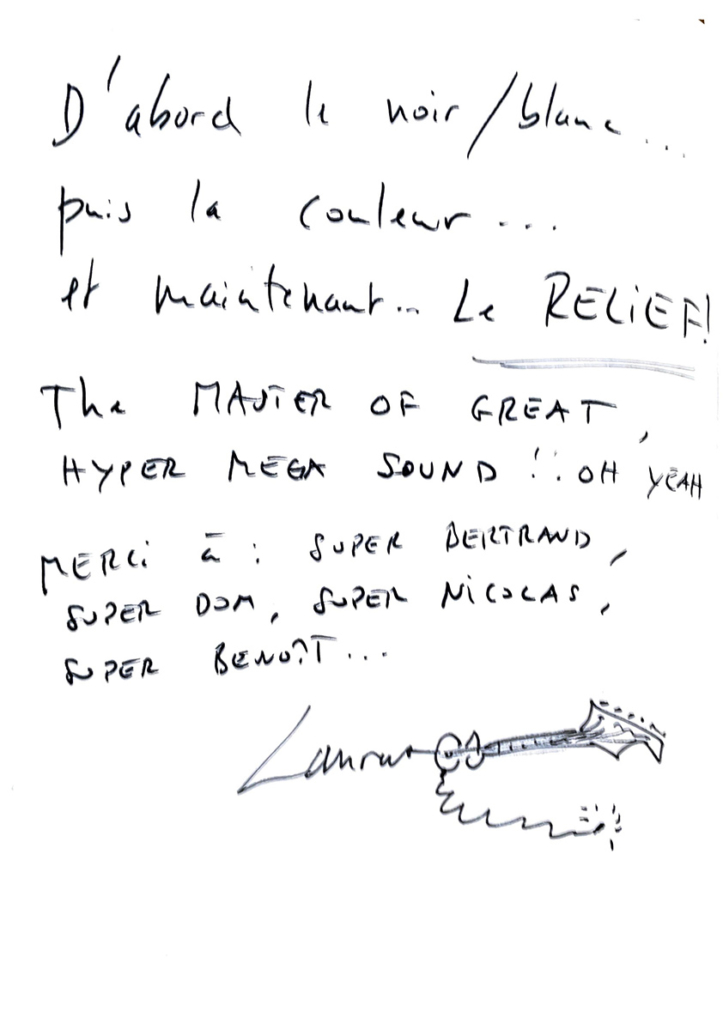 D'abord le noir/blanc...
puis la couleur...
et maintenant... Le RELiEF!
The MASTER OF GREAT,
HYPER MEGA SOUND !! OH YEAH
MERCi à : SUPER BERTRAND,
SUPER DOM, SUPER NiCOLAS,
SUPER BENOîT...
Laurent